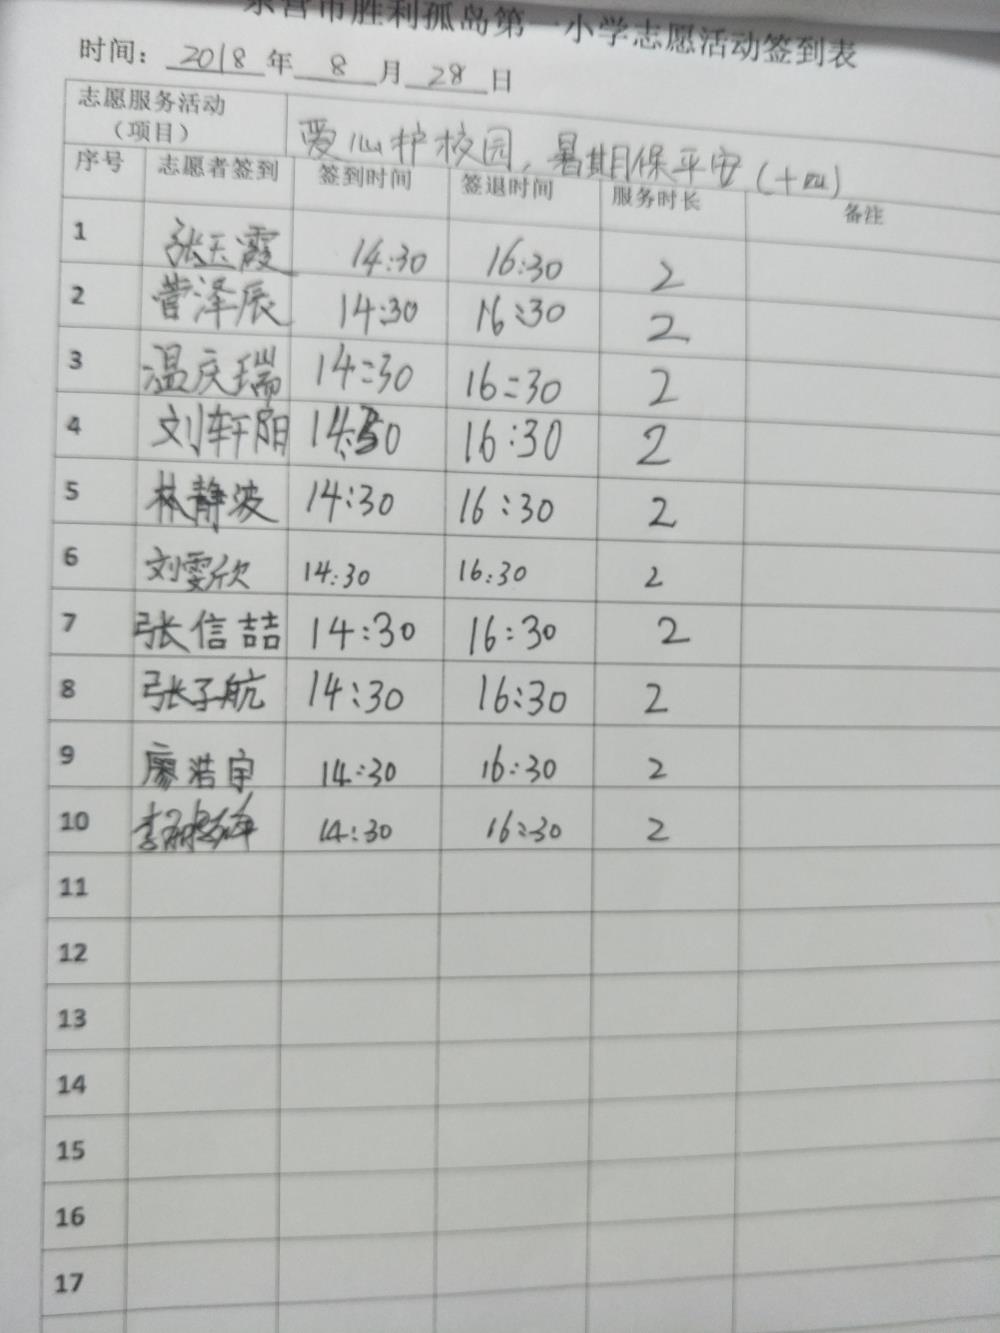 东营市胜利孤岛第一小学志愿活动签到表
时间：2018年8月28日
志愿服务活动
（项目） 爱心护校园，暑期保平安（十四）
序号 志愿者签到 签到时间 签退时间 服务时长 备注
1 张天霞 14:30 16:30 2
2 菅泽辰 14:30 16:30 2
3 温庆瑞 14:30 16:30 2
4 刘轩阳 14:30 16:30 2
5 林静波 14:30 16:30 2
6 刘雯欣 14:30 16:30 2
7 张信喆 14:30 16:30 2
8 张子航 14:30 16:30 2
9 廖浩宇 14:30 16:30 2
10 李 14:30 16:30 2
11
12
13
14
15
16
17